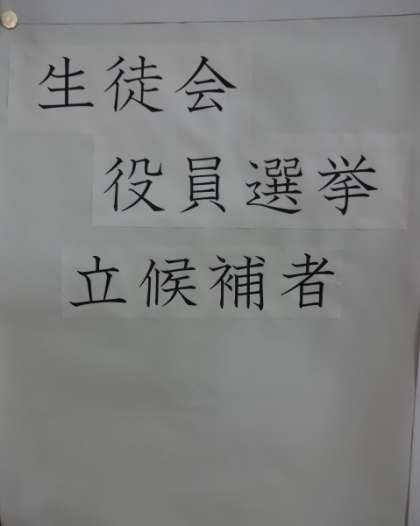 生徒会
役員選挙
立候補者